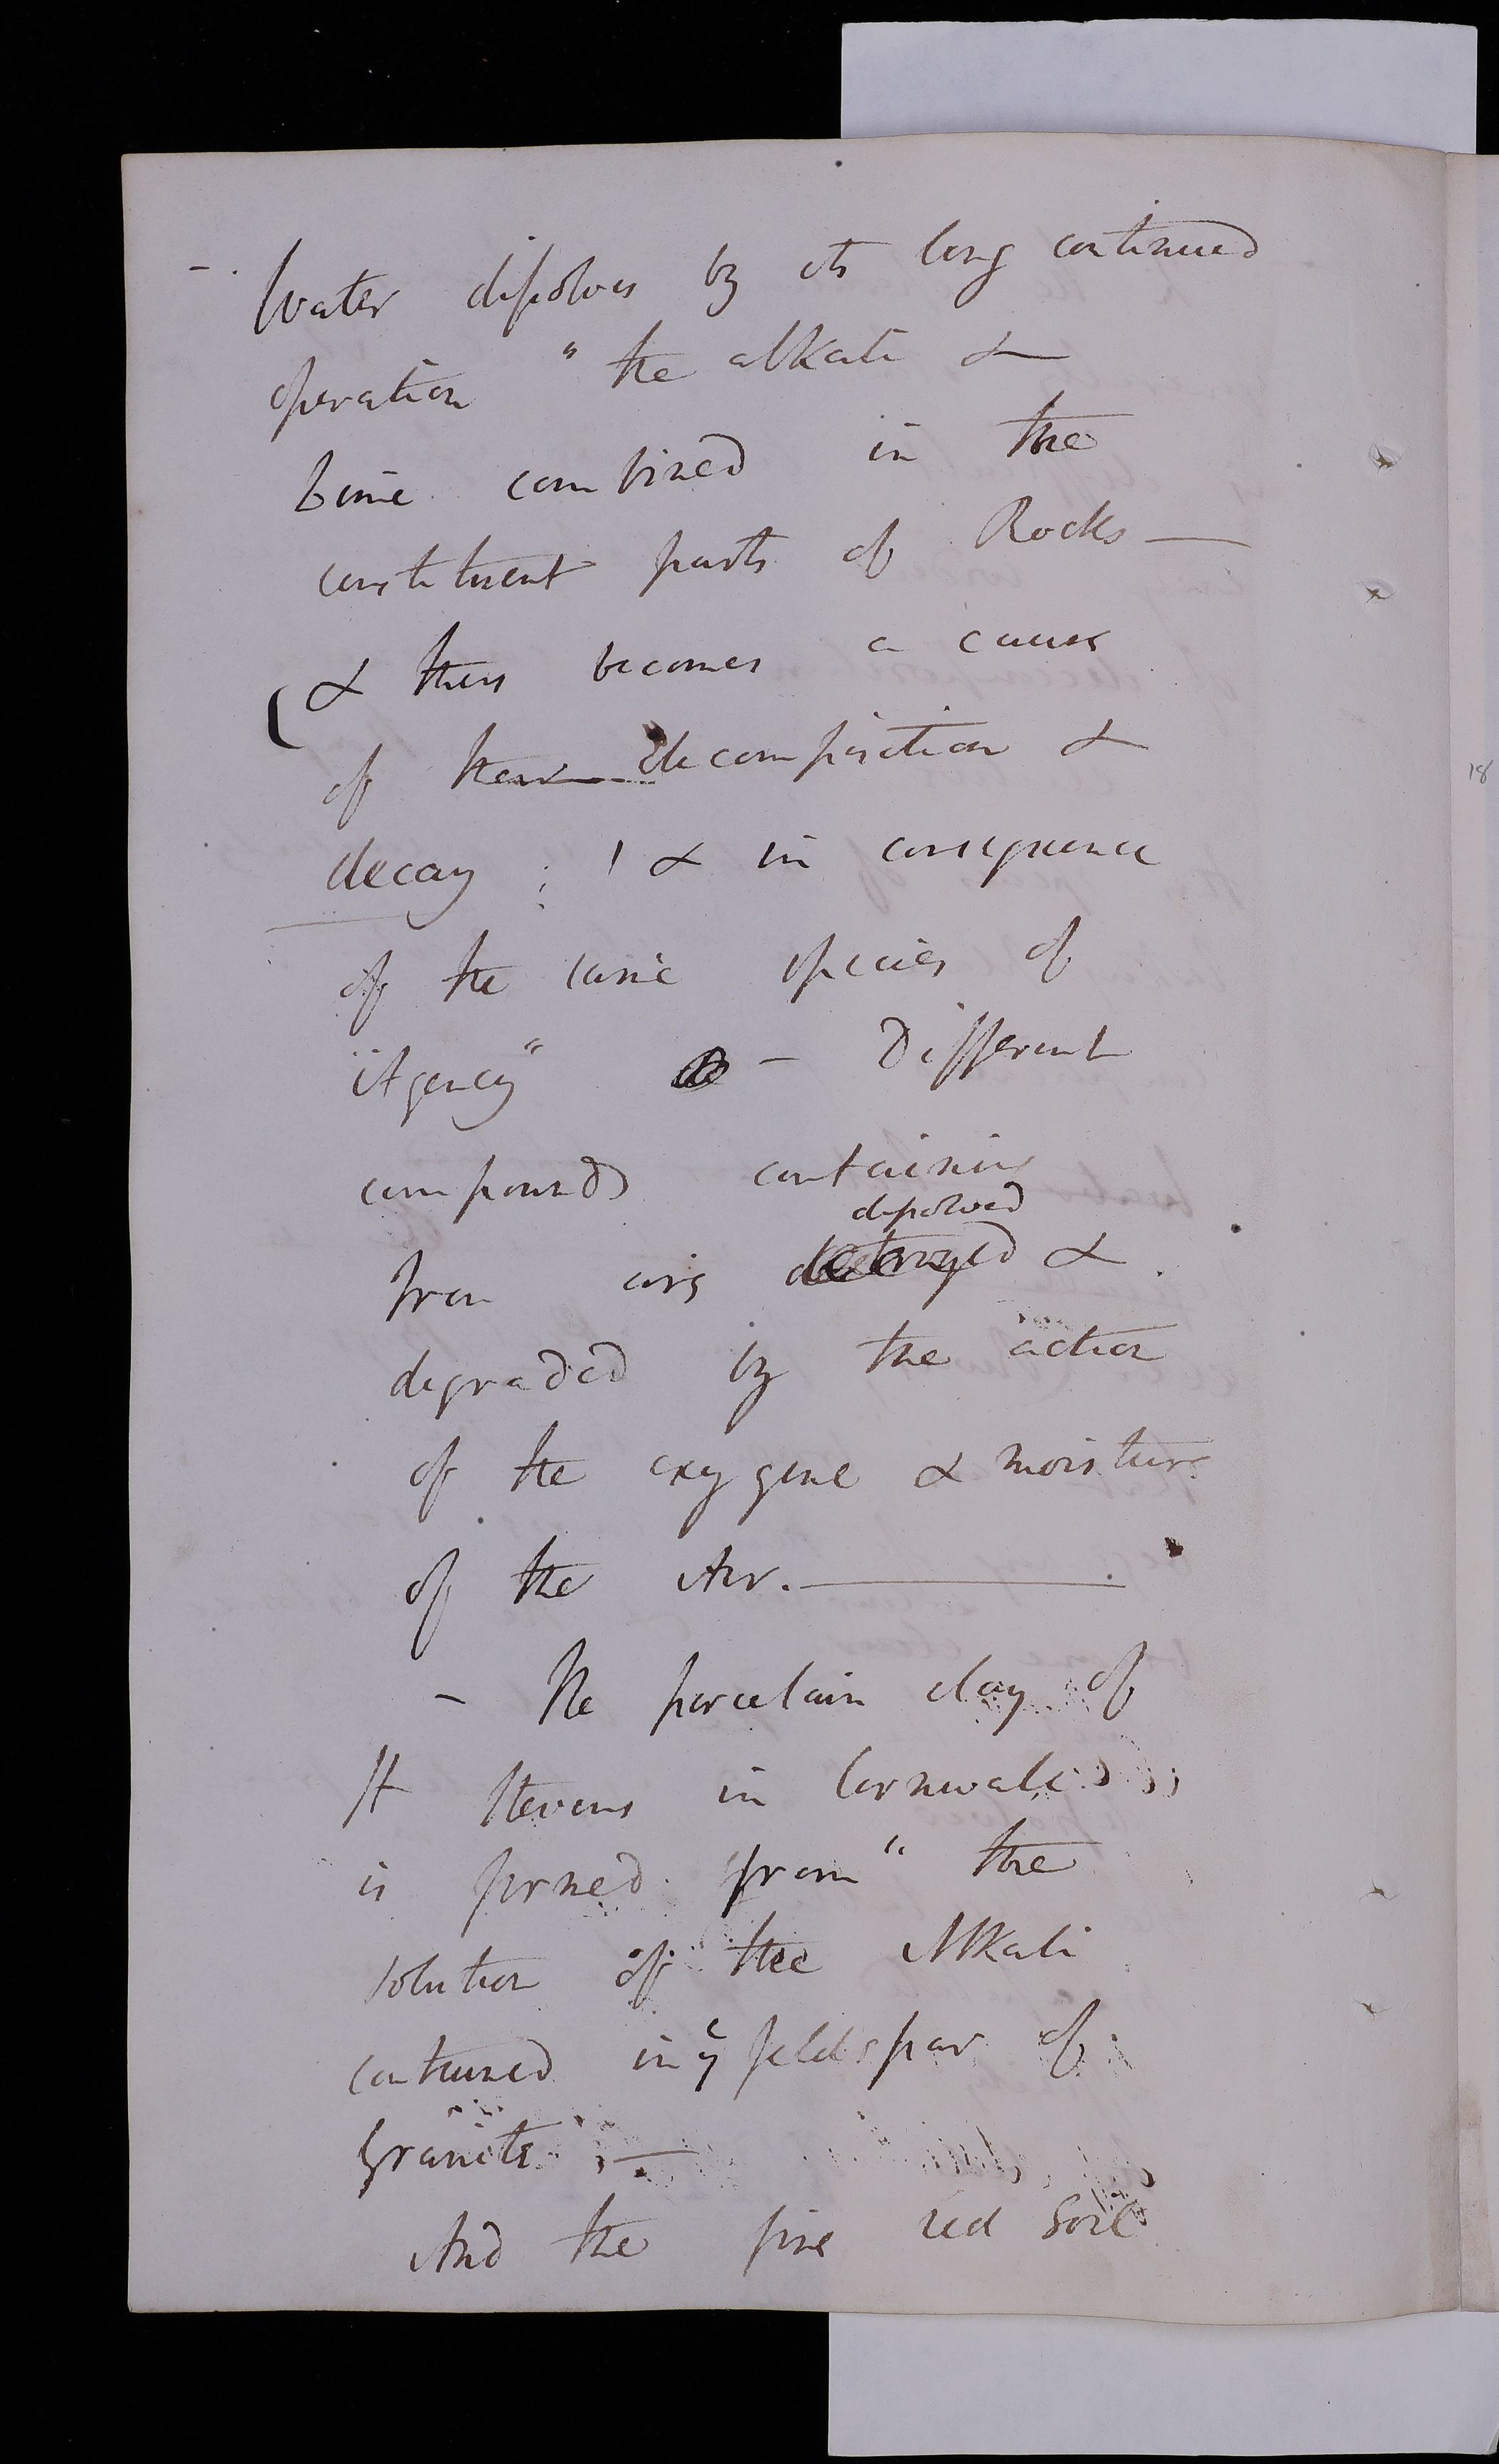 - Water dissolves by its long continued
operation " the alkali &
Lime combined in the
constituent parts of Rocks —
( & thus becomes a cause
of their decomposition &
decay ; & in consequence
of the same species of
"Agency" - Different
compounds containing
dissolved
Iron are destroyed &
degraded by the action
of the oxygene & moisture
of the Air. —
- The porcelain clay of
St Stevens in Cornwall
is formed from " the
solution of the Alkali
contained in ye feldspar of
Granite . —
And the fine red Soil
18